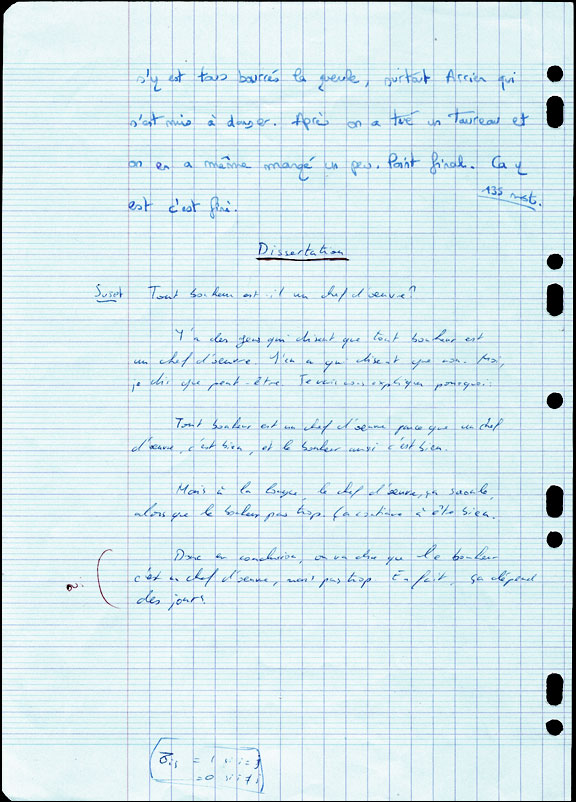 s'y est tous bourrés la gueule, surtout Arrien qui
s'est mis à danser. Après on a tué un taureau et
on en a même mangé un peu. Point final. Ca y
est c'est fini.
135 mots.
Dissertation
Sujet Tout bonheur est-il un chef d'œuvre?
Y'a des gens qui disent que tout bonheur est
un chef d'œuvre. Y'en a qui disent que non. Moi,
je dis que peut-être. Je vais vous expliquer pourquoi.
Tout bonheur est un chef d'œuvre parce que un chef
d'œuvre, c'est bien, et le bonheur aussi c'est bien.
Mais à la longue, le chef d'œuvre, ça saoule,
alors que le bonheur pas trop. Ça continue à être bien.
Donc en conclusion, on va dire que le bonheur
c'est un chef d'œuvre, mais pas trop. En fait, ça dépend
des jours.
= 1 si i=j
=0 si i≠j